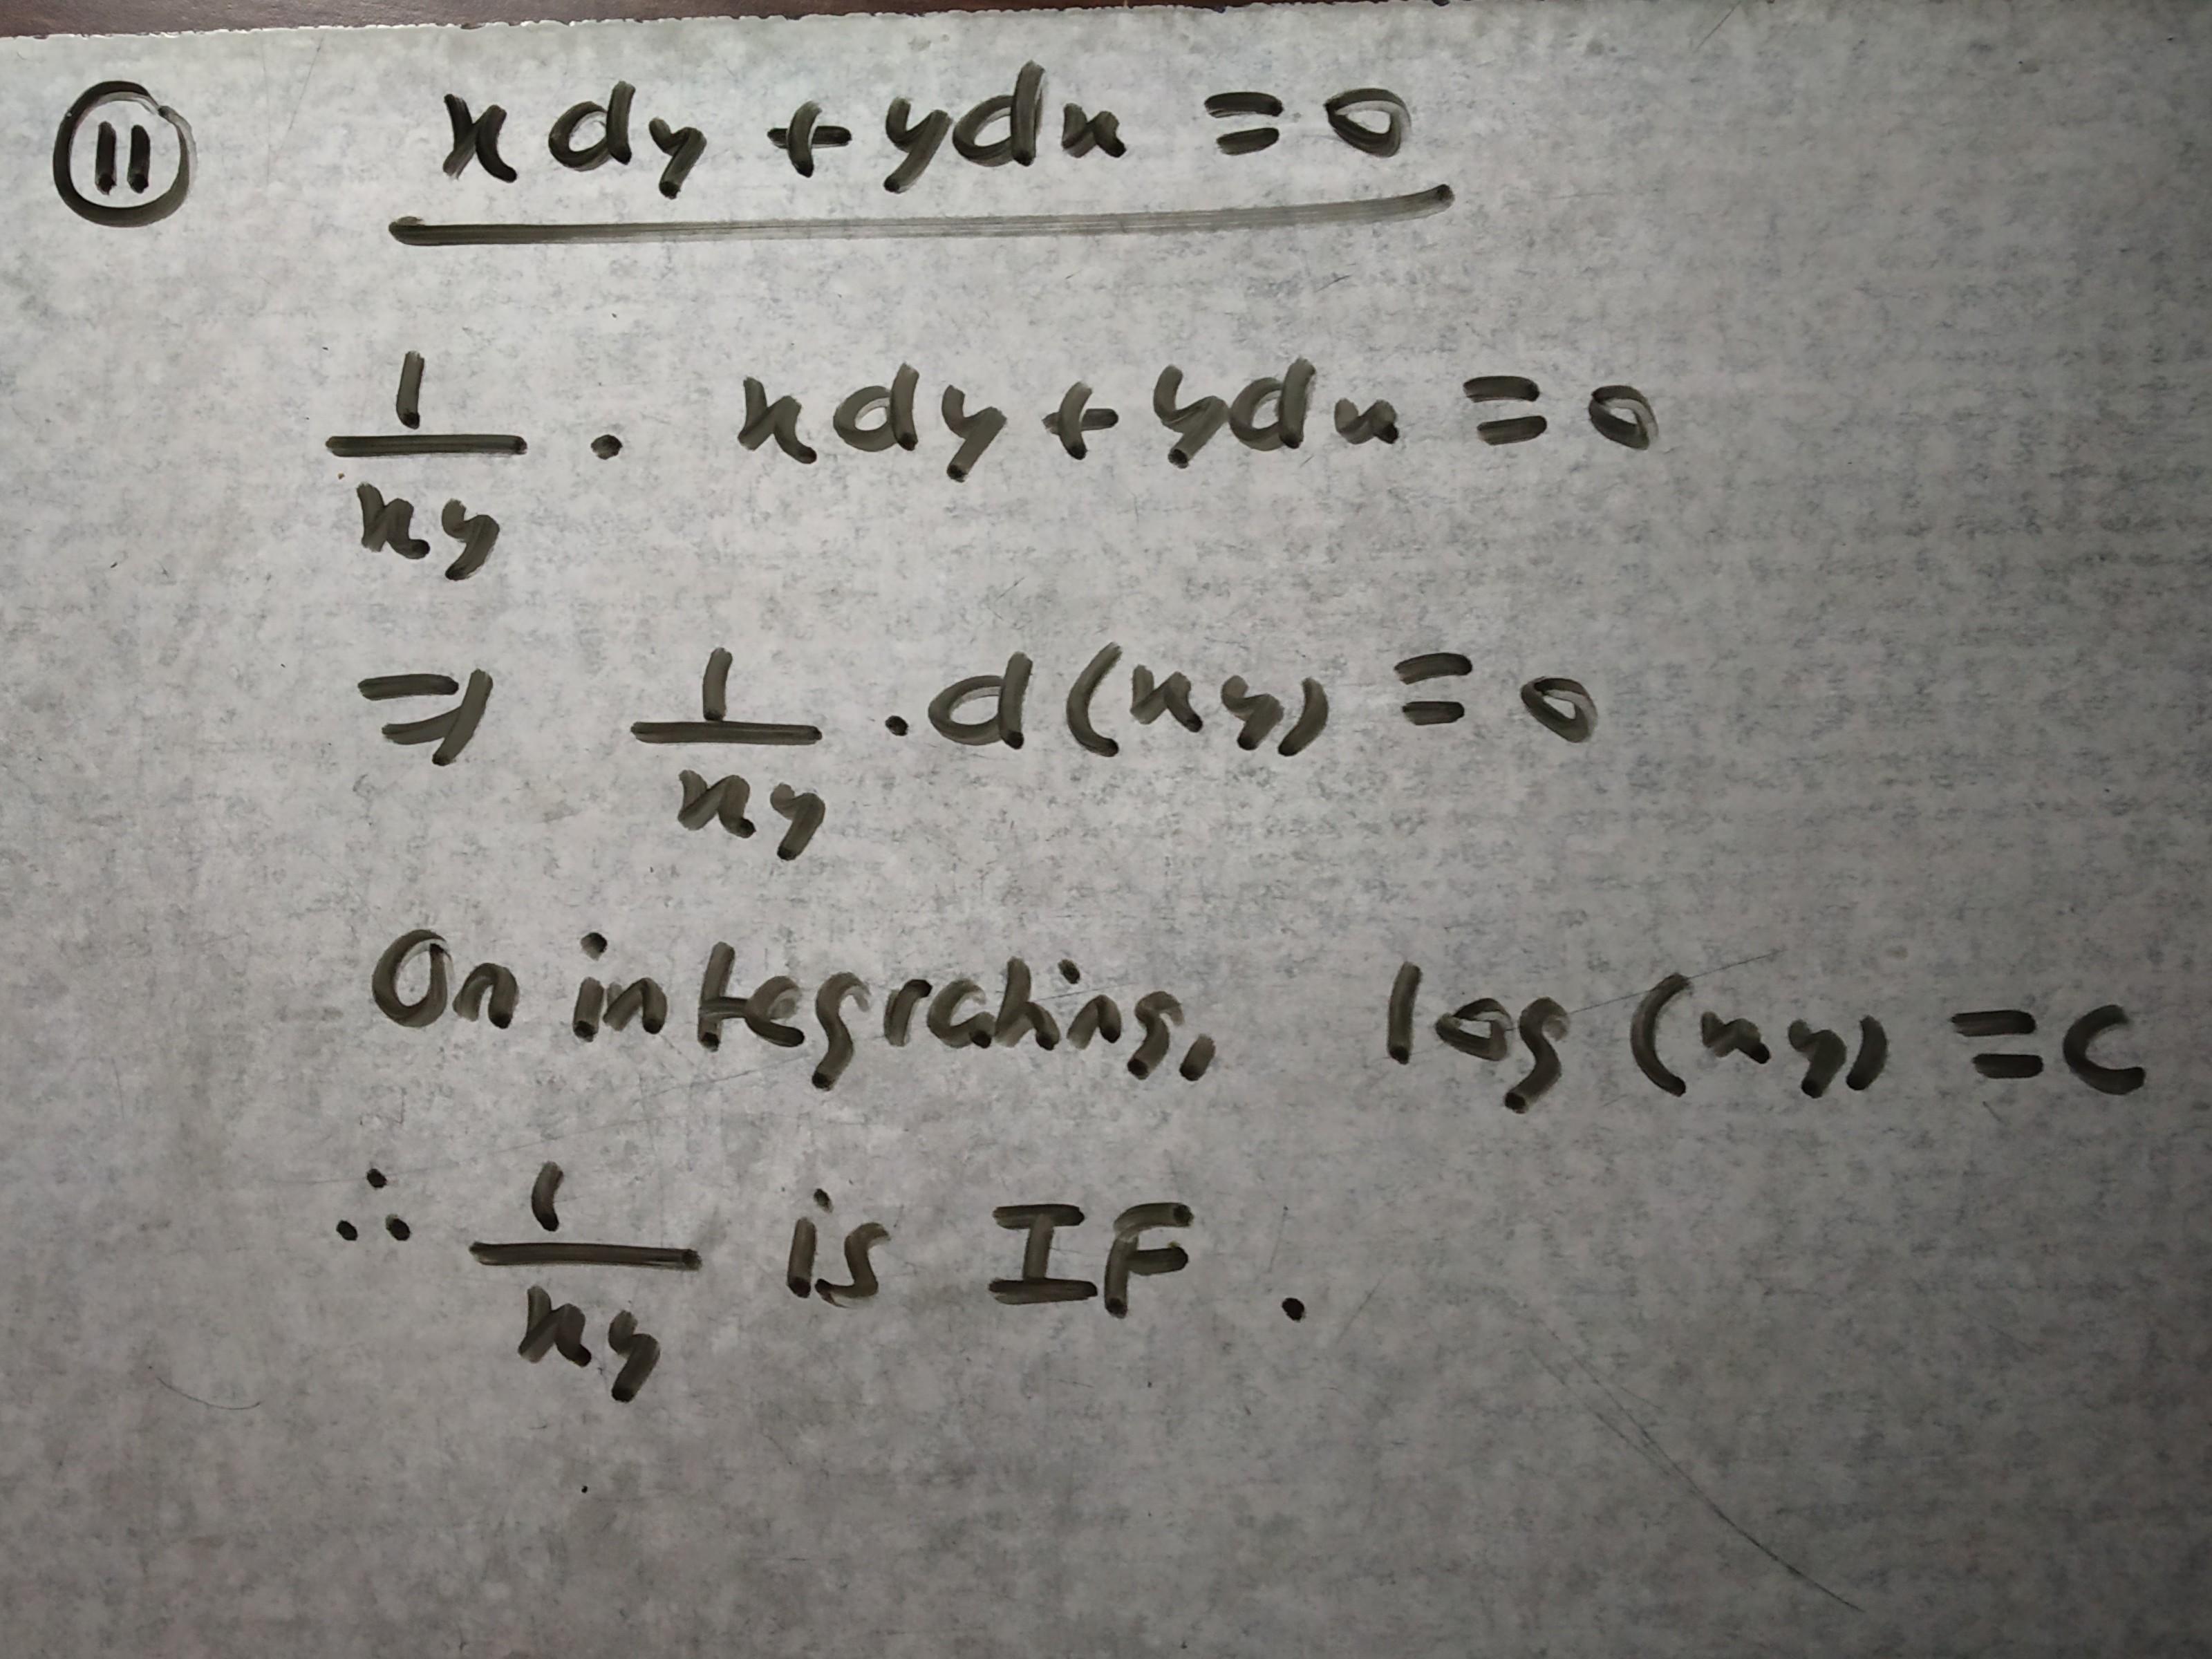 ⑪ xdy + ydx = 0
1/xy · xdy + ydx = 0
⇒ 1/xy · d(xy) = 0
On integrating, log (xy) = c
∴ 1/xy is IF.